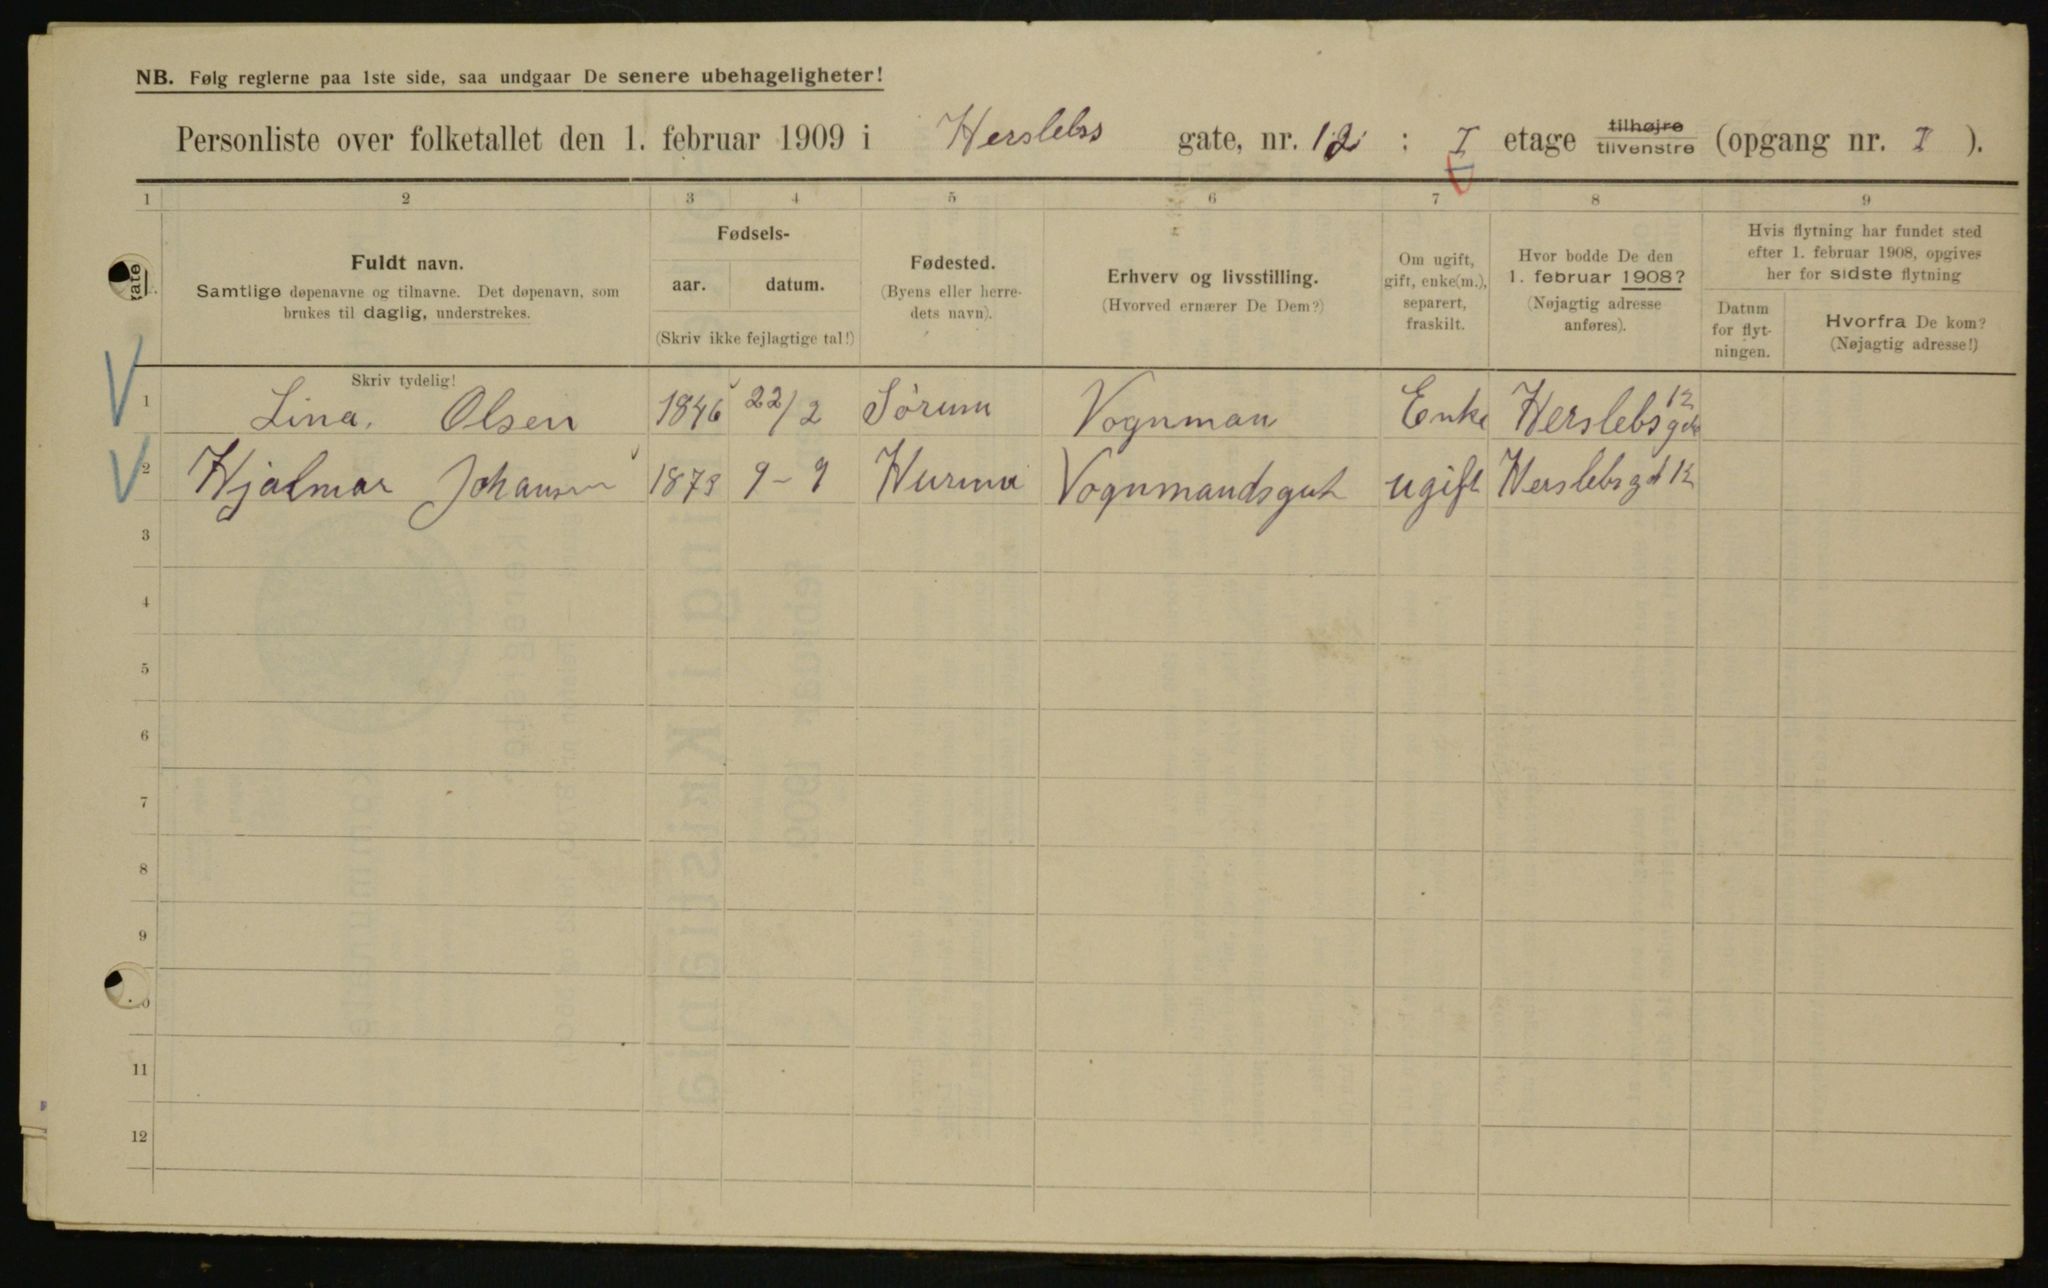 NB. Følg reglerne paa 1ste side, saa undgaar De senere ubehageligheter!
Personliste over folketallet den 1. februar 1909 i Herslebs gate, nr. 12 : I etage tilhøjre tilvenstre (opgang nr. I ).
1 2 3 4 5 6 7 8 9
Fuldt navn.
Samtlige døpenavne og tilnavne. Det døpenavn, som
brukes til daglig, understrekes.
Skriv tydelig!
Fødsels-
aar. datum.
(Skriv ikke fejlagtige tal!)
Fødested.
(Byens eller herre-
dets navn).
Erhverv og livsstilling.
(Hvorved ernærer De Dem?)
Om ugift,
gift, enke(m.),
separert,
fraskilt.
Hvor bodde De den
1. februar 1908?
(Nøjagtig adresse
anføres).
Hvis flytning har fundet sted
efter 1. februar 1908, opgives
her for sidste flytning
Datum
for flyt-
ningen.
Hvorfra De kom?
(Nøjagtig adresse!)
1 Lina. Olsen 1846 22/2 Sørum Vognman Enke Herslebsgde 12
2 Hjalmar Johansen 1879 9-9 Hurum Vognmandsgut ugift Herslebsgd 12
3
4
5
6
7
8
9
11
12